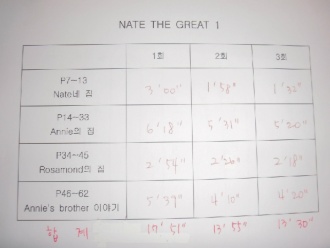 NATE THE GREAT 1
1회 2회 3회
P7-13
Nate네 집
3'00" 1'58" 1'32"
P14-33
Annie의 집
6'18" 5'31" 5'20"
P34-45
Rosamond의 집
2'54" 2'26" 2'18"
P46-62
Annie's brother 이야기
5'39" 4'10" 4'20"
합 계 17'51" 13'55" 13'30"